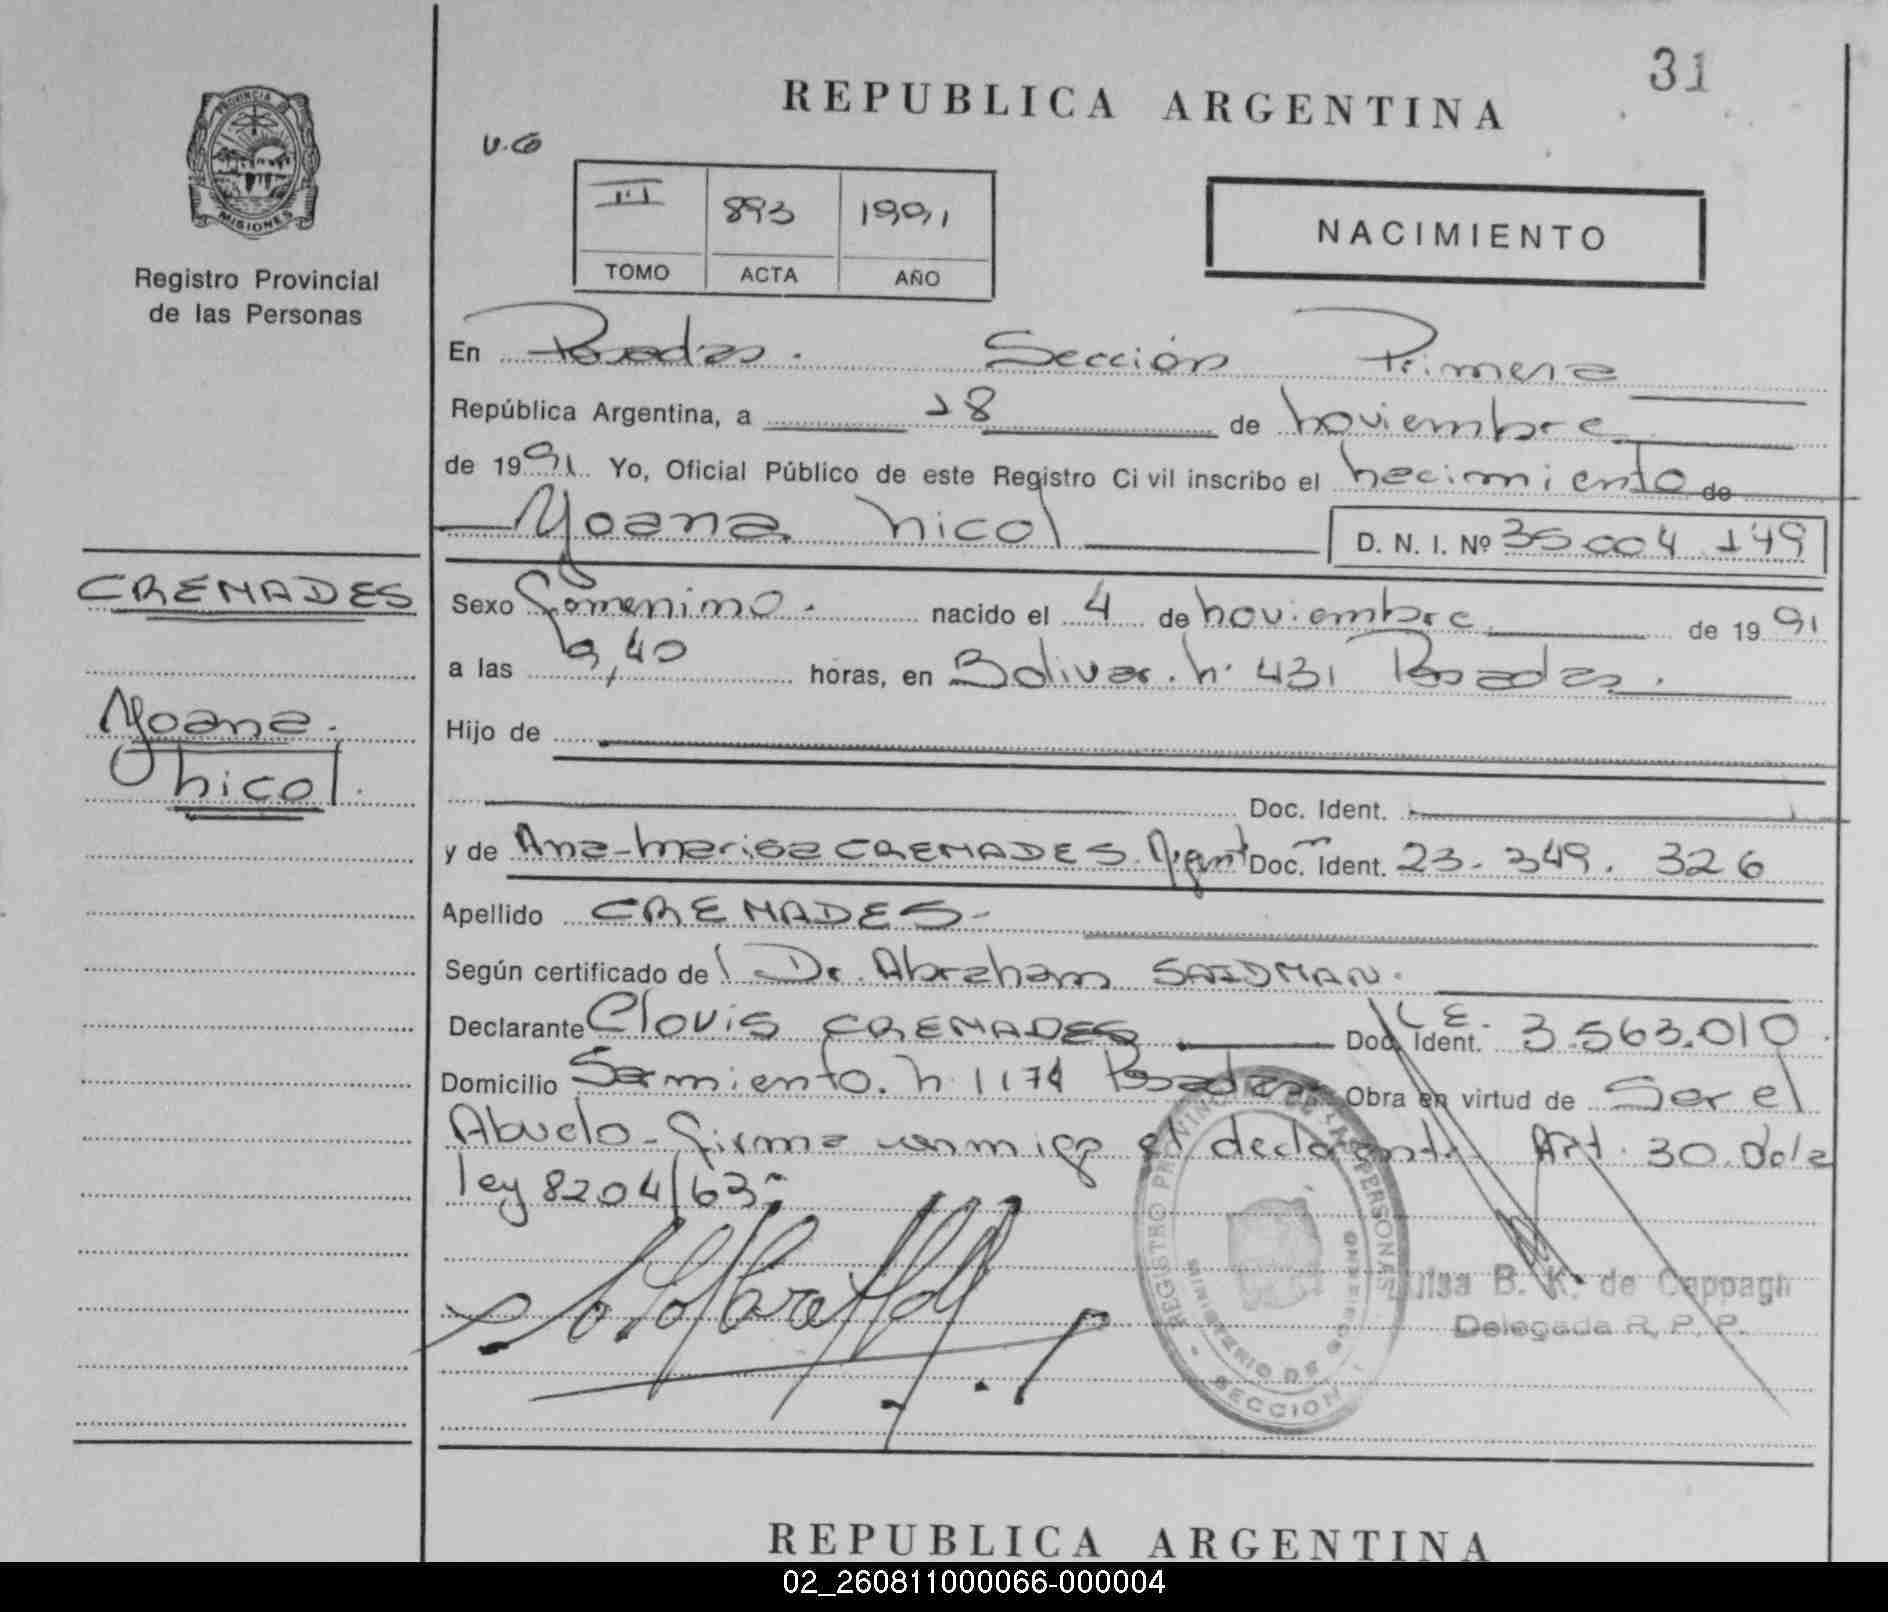 31
REPUBLICA ARGENTINA
PROVINCIA DE
MISIONES
Registro Provincial
de las Personas
v.c
III 893 1991
TOMO ACTA AÑO
NACIMIENTO
En Posadas. Sección Primera
República Argentina, a 18 de noviembre
de 1991 Yo, Oficial Público de este Registro Civil inscribo el nacimiento de
Yoana nicol D. N. I. Nº 36.004.149
CREMADES
Yoana.
nicol.
Sexo Femenino. nacido el 4 de noviembre de 1991
a las 9,40 horas, en Bolivar. n. 431 Posadas.
Hijo de
Doc. Ident.
y de Ana-Marisa CREMADES. Argent Doc. Ident. 23.349.326
Apellido CREMADES-
Según certificado de Dr. Abraham SAIDMAN.
Declarante Clovis CREMADES Doc. Ident. L E. 3.563.010
Domicilio Sarmiento. n. 1174 Posadas Obra en virtud de Ser el
Abuelo-firma conmigo el declarante Art. 30. de la
ley 8204/63
REGISTRO PROVINCIAL DE LAS PERSONAS
MINISTERIO DE GOBIERNO
SECCION
Luisa B. K. de Cappagli
Delegada R. P. P.
REPUBLICA ARGENTINA
02_260811000066-000004